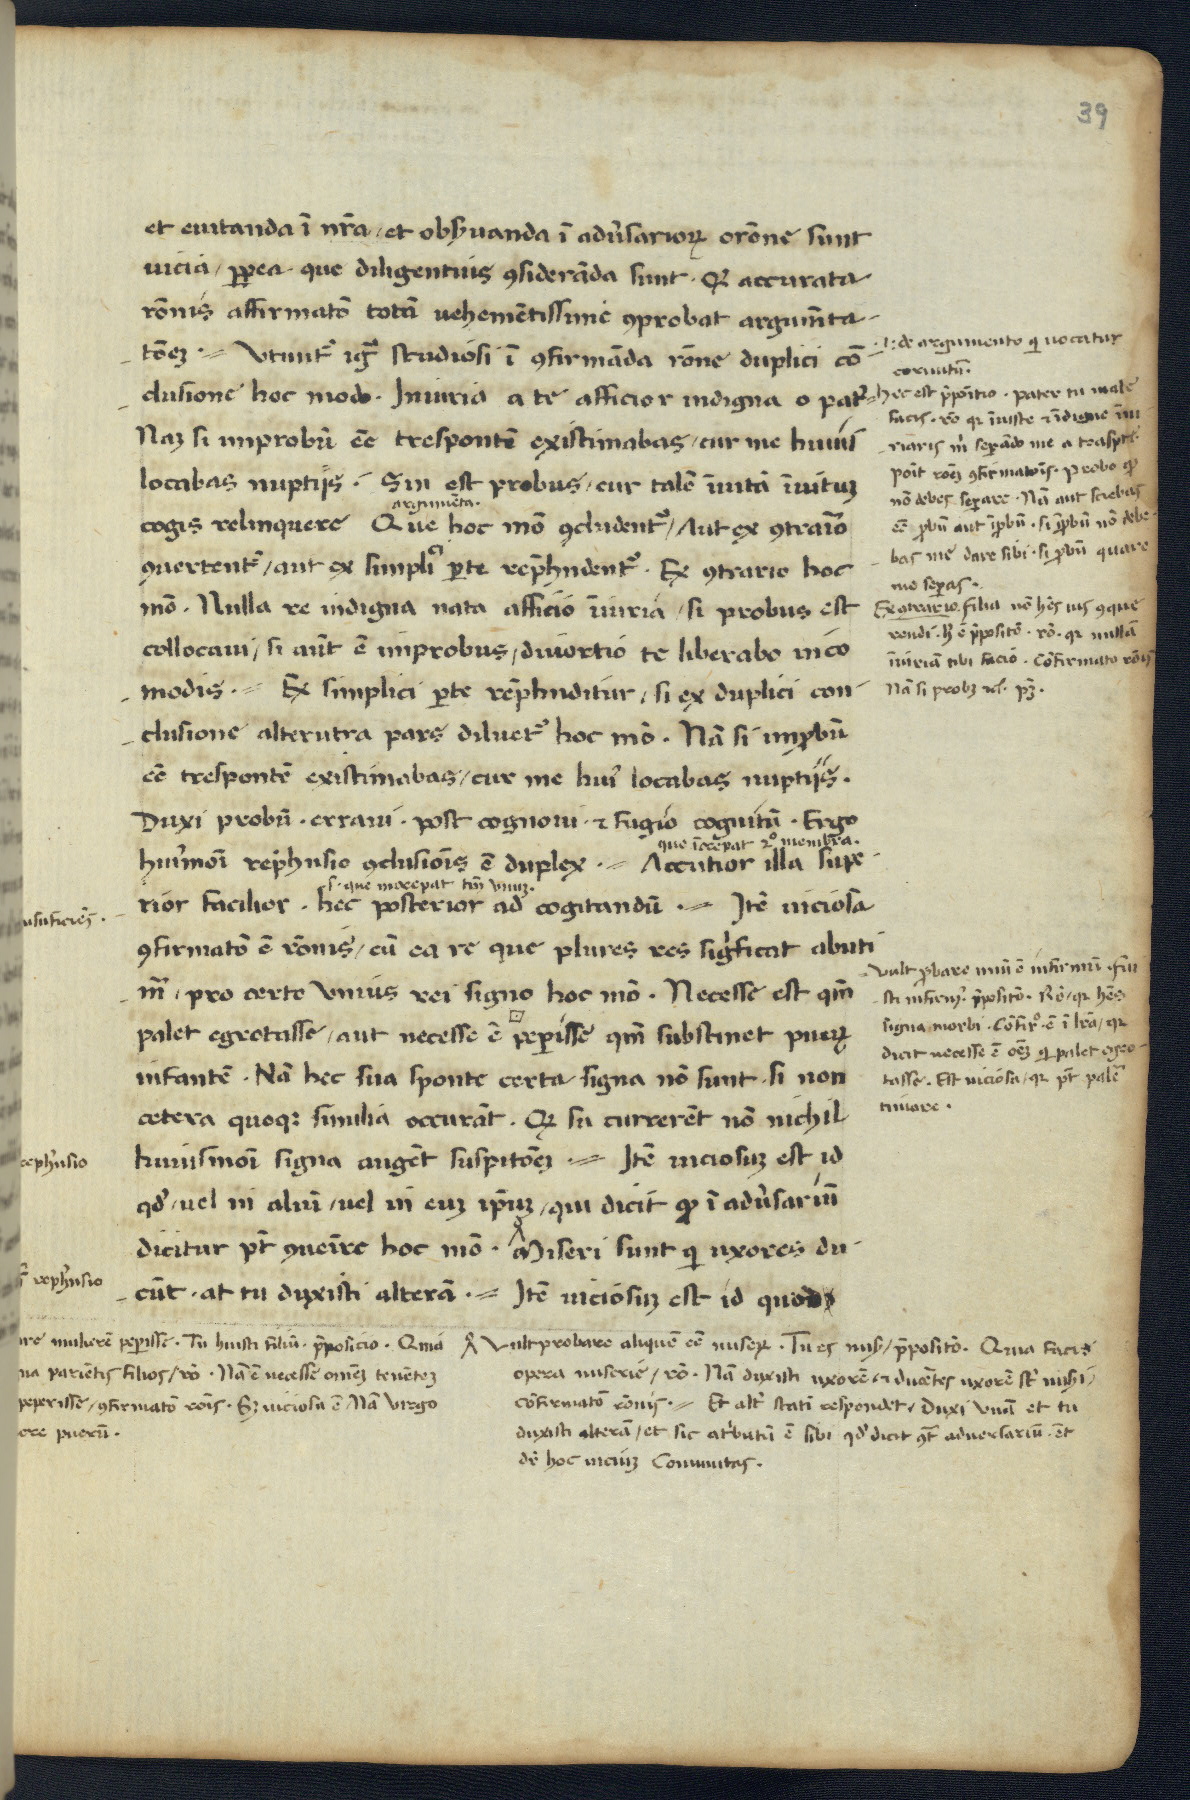 39
et euitanda ī nr̄a / et obẜuanda ī adũsarioꝝ or̄one sunt
uicia / ꝓpea que diligentius ꝯsiderāda sunt · Qꝛ accurata
rōnis affirmatō totā uehemētissime ꝯprobat argum̄ta-
tōeꝫ · Vtunt᷑ igr̄ studiosi ī ꝯfirmāda rōne duplici cō
clusione hoc modo · Iniuria a te afficior indigna o pat᷑
Naꝫ si improbū ēē trespontē existimabas / cur me huius
locabas nuptijs · Sin est probus / cur talē īuitā īuituꝫ
argumēta ·
cogis relinquere Que hoc mō ꝯcludent᷑ / Aut ex ꝯtrario
ꝯuertent᷑ / aut ex simplici ꝑte rep̄hndent᷑ · Ex ꝯtrario hoc
mō · Nulla re indigna nata afficio īiuria / si probus est
collocaui / si aūt ē improbus / diuortio te liberabo incō
modis · Ex simplici ꝑte rep̄hnditur / si ex duplici con
clusione alterutra pars diluet᷑ hoc mō · Nā si imꝓbū
ēē trespontē existimabas / cur me hui᷒ locabas nuptijs ·
Duxi probū · erraui · post cognoui · ⁊ fugio cognitū · Ergo
que īcrepat 2º membra ·
hui᷒moī rep̄hnsio ꝯclusiōis ē duplex · Accutior illa supe
s · que increpat tm̄ vnuꝫ ·
rior facilior · hec posterior ad cogitandū · Itē uiciosa
ꝯfirmatō ē rōnis / cū ea re que plures res significat abuti
mr̄ / pro certo vnius rei signo hoc mō · Necesse est qm̄
palet egrotasse / aut necesse ē peperisse qm̄ substinet pueꝝ
infantē · Nā hec sua sponte certa signa nō sunt · si non
cetera quoqꝫ similia occurāt · Qꝛ si currerēt nō nichil
huiusmoī signa augēt suspitōeꝫ · Itē uiciosuꝫ est id
qd̄ / uel in aliū / uel in euꝫ ip̄uꝫ / qui dicit ꝙ ī adũsariū
dicitur pt̄ ꝯueīre hoc mō · Miseri sunt qi uxores du
cūt · at tu duxisti alterā · Itē uiciosuꝫ est id quod
· de argumento qi uocatur
cornutū ·
hec est ꝓpositio · pater tu male
facis · rō qꝛ īiuste ⁊ īdigne īiu
riaris m̄ seꝑādo me a
ponit roēꝫ ꝯfirmatōis · Probo ꝙ
nō debes seꝑare · Nā aut sciebas
eē ꝓbū aut īꝓbū · si īꝓbū nō debe
bas me dare sibi · si ꝓbū quare
me seꝑas ·
Ex ꝯtrario filia nō hēs ius ꝯque
rendi · ꝓpositō · rō · qꝛ nullā
īiuriā tibi facio · Cōfirmato rōis
Nā si probꝫ
usuficiēs ·
Vult ꝓbare ē infirmū · fui
sti infirmꝫ ꝓpositō · Rō / qꝛ hēs
signa morbi · Cōfir · ē ī lr̄a / qꝛ
dicit necesse ē oēꝫ qi palet egro
tasse · Est uiciosa / qꝛ pt̄ palē
tiniare ·
ep̄hnsio
rep̄hnsio
are mulierē peperisse · Tu huisti filiū · ꝓposicio · Quia
na parientis filios / rō · Nā ē necesse omēꝫ tenēteꝫ
peperisse / ꝯfirmatō rōis · Sꝫ uiciosa ē Nā virgo
ere puerū ·
Vult probare aliquē eē miseꝝ · Tu es misꝫ / ꝓpositō · Quia facis
opera miserie / rō · Nā duxisti uxorē · ⁊ ducētes uxorē st̄ miseri
cōfirmatō rōnis · Et alt᷑ statī respondet / Duxi vnā et tu
duxisti alterā / et sic atributū ē sibi qd̄ dicit ꝯt̄ aduersariū · et
dr̄ hoc uiciuꝫ Comunitas ·